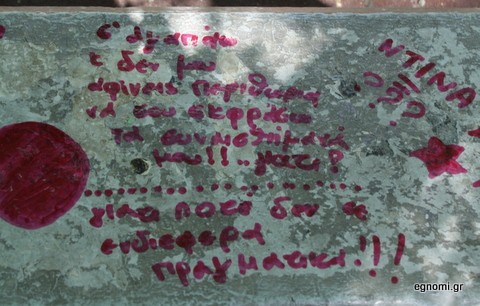 σ' αγαπάω
κ δεν μου
αφίνεις περιθώρια
να σου εκφράσω
τα συναισθήματά
μου!!..γιατι?
γιατι ποτέ δεν σε
ενδιέφερα
πραγματικά!!!
ΝΤΙΝΑ
???
egnomi.gr